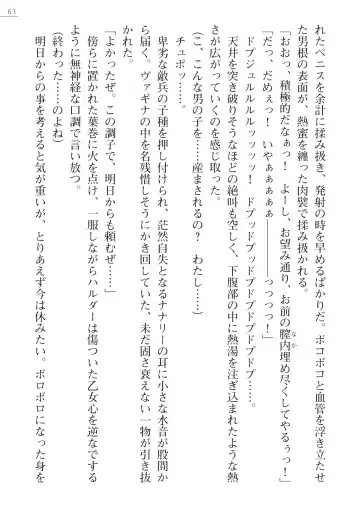 63
れたペニスを余計に揉み扱き、発射の時を早めるばかりだ。ボコボコと血管を浮き立たせ
た男根の表面が、熱蜜を纏った肉襞で揉み扱かれる。
「おおっ、積極的だなぁっ！　よーし、お望み通り、お前の膣内埋め尽くしてやるぅっ！」
なか
「だっ、だめぇっ！　いやぁぁぁぁぁ――――――っっっっ！」
ドプジュルルルルッッッッ！　ドプッドプッドプドプドプドプ……。
天井を突き破りそうなほどの絶叫も空しく、下腹部の中に熱湯を注ぎ込まれたような熱
さが広がっていくのを感じ取った。
（こ、こんな男の子を……産まされるの？　わたし……）
チュポッ……。
卑劣な敵兵の子種を押し付けられ、茫然自失となるナナリーの耳に小さな水音が股間か
ら届く。ヴァギナの中を名残惜しそうにかき回していた、未だ固さ衰えない一物が引き抜
かれた。
「よかったぜ。この調子で、明日からも頼むぜ……」
傍らに置かれた葉巻に火を点け、一服しながらハルダーは傷ついた乙女心を逆なでする
ように無神経な口調で言い放つ。
（終わった……のよね）
明日からの事を考えると気が重いが、とりあえず今は休みたい。ボロボロになった身を